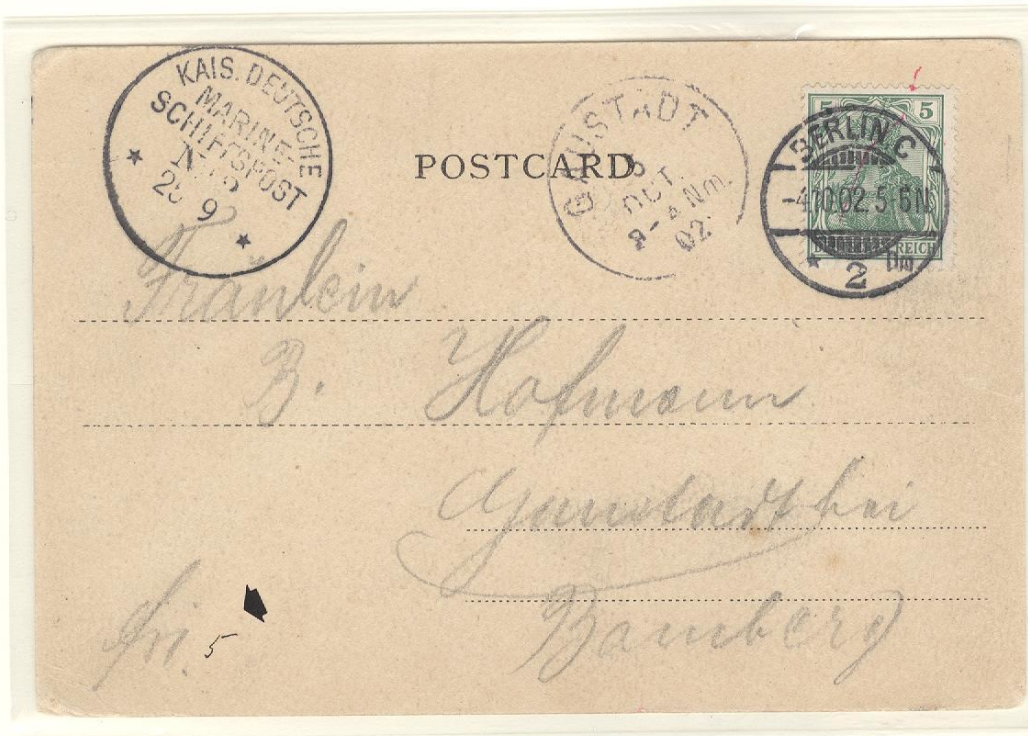 KAIS. DEUTSCHE
MARINE-
SCHIFFSPOST
9
POSTCARD
GAUSTADT
OCT.
3-4 Nm.
02.
5 5
REICH
BERLIN C
-4.10.02.5-6N
2
Fräulein
B. Hofmann
Gaustadt bei
Bamberg
5